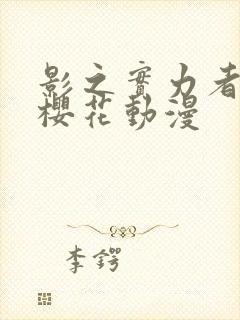 影之實力者
櫻花動漫
李鍔